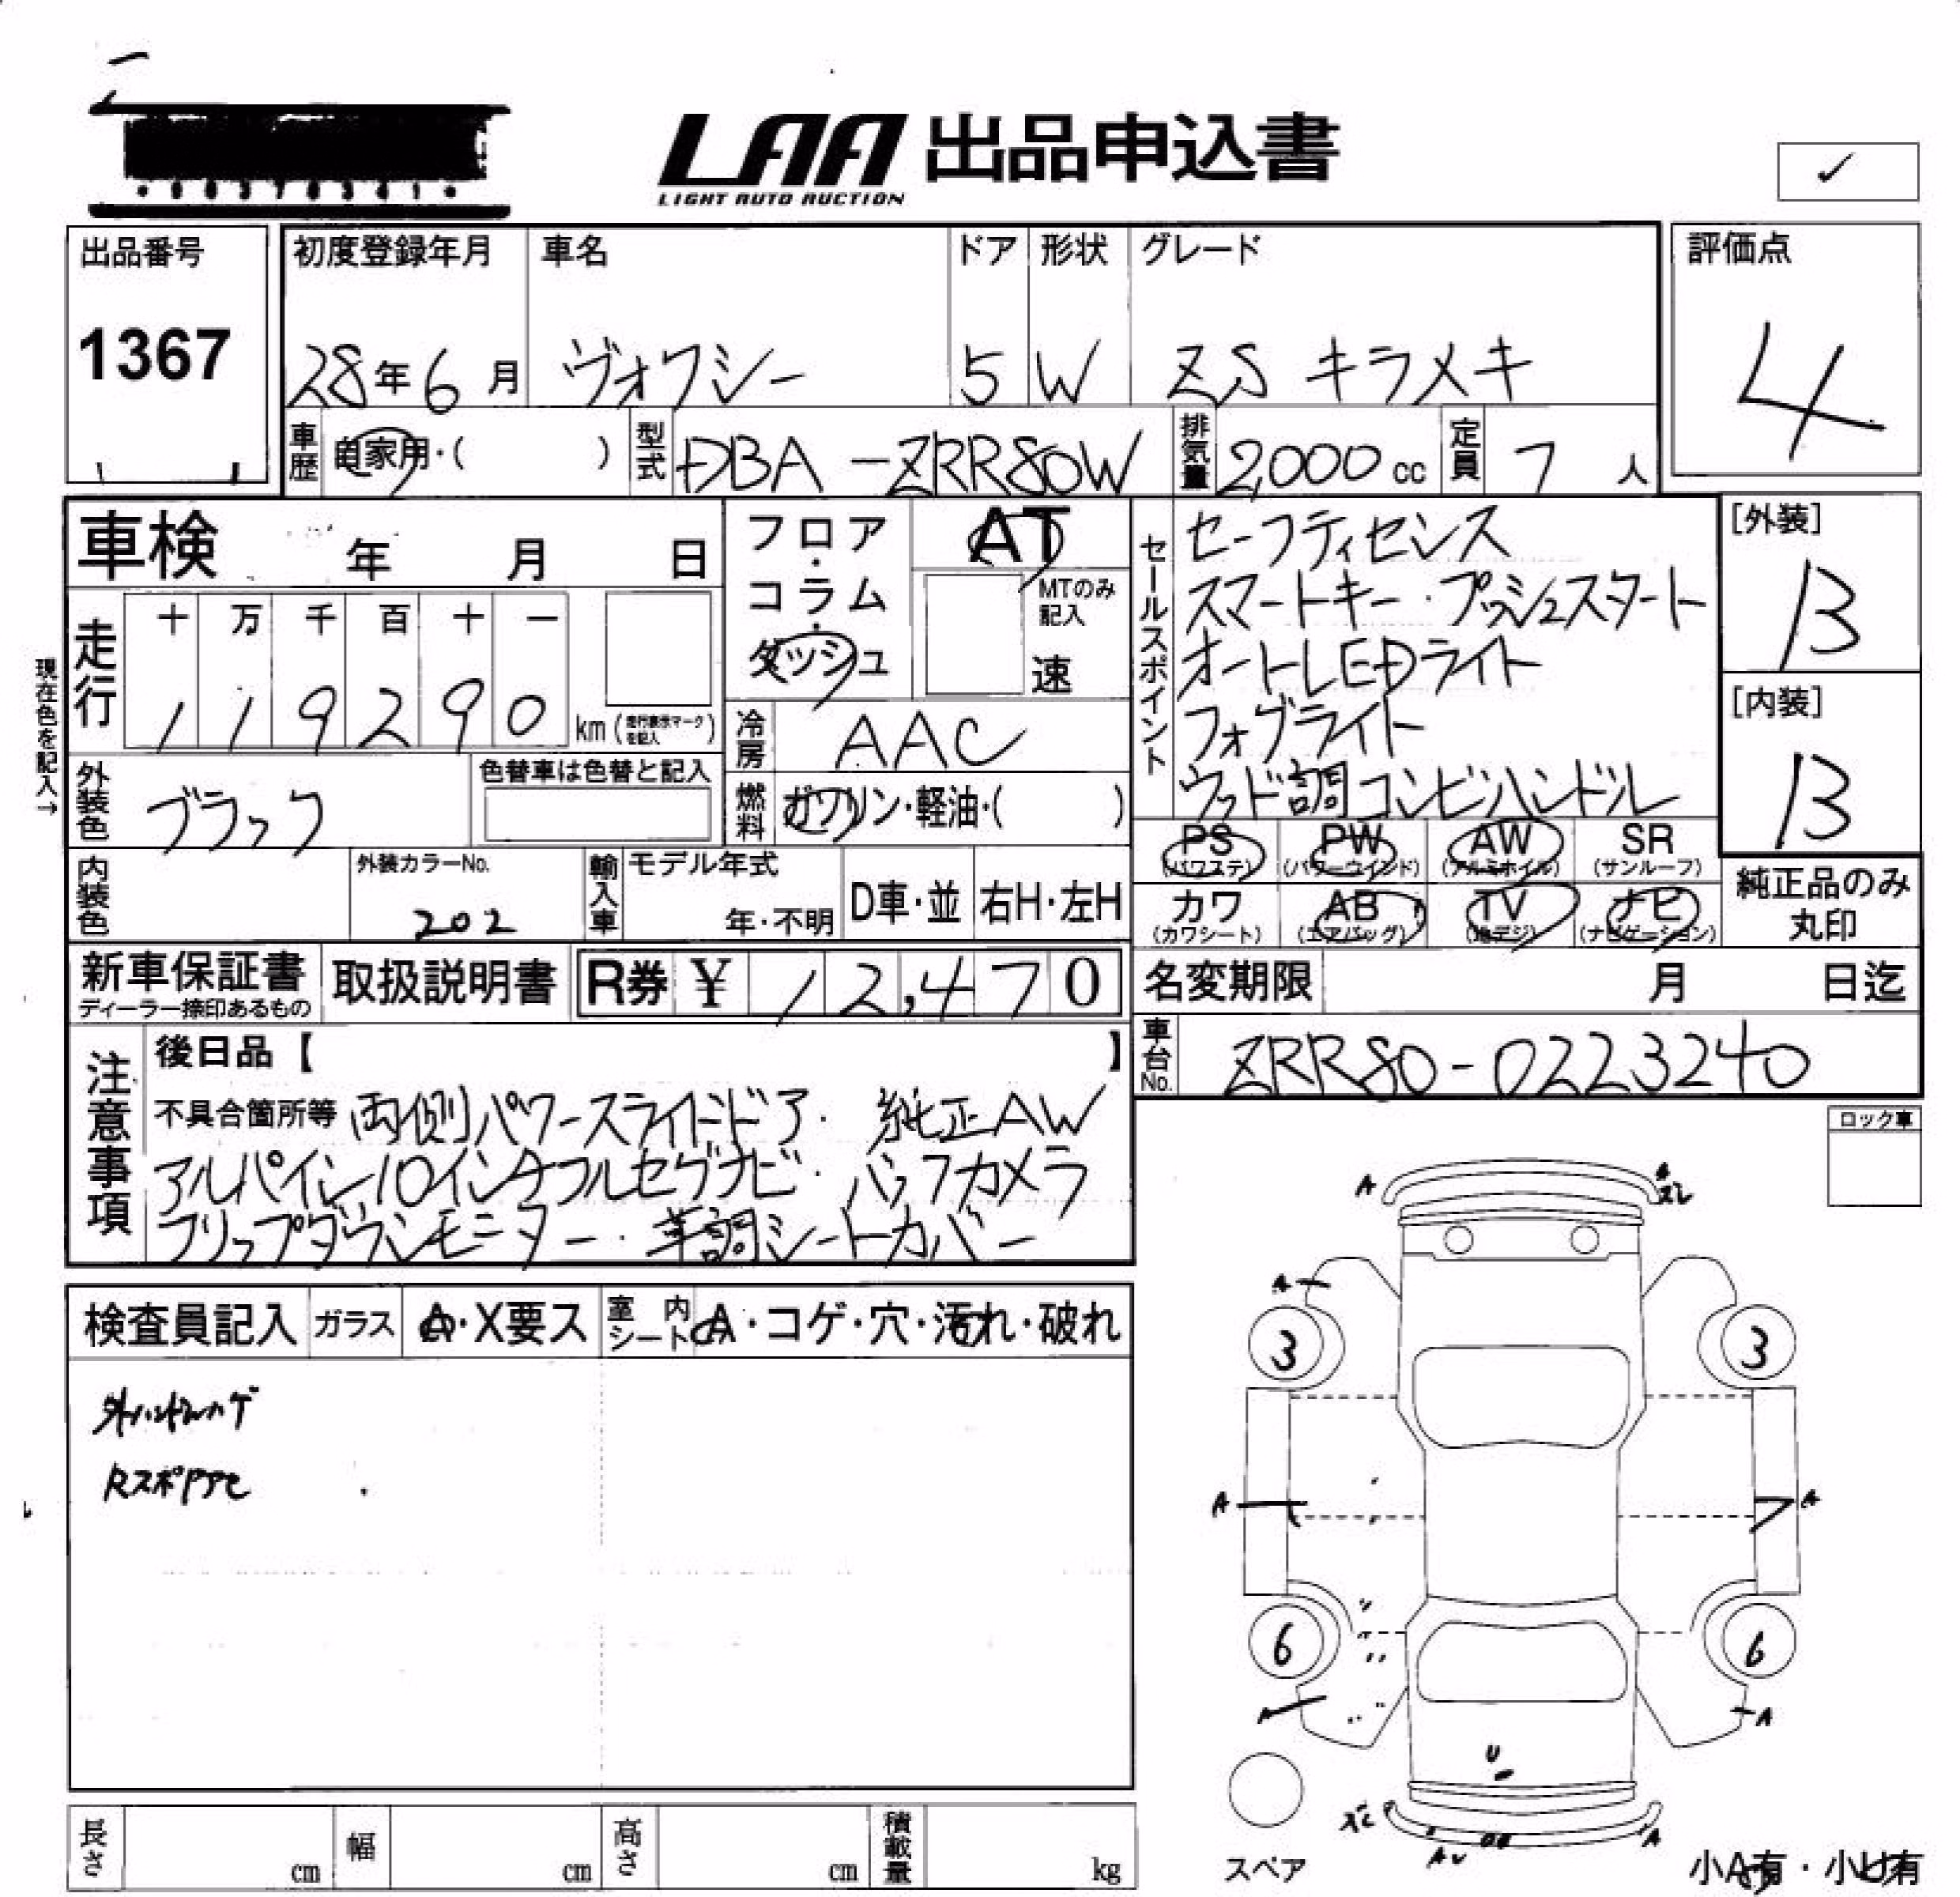 LAA 出品申込書
LIGHT AUTO AUCTION
✓
出品番号
1367
初度登録年月
28年6月
車名
ヴォクシー
ドア
5
形状
W
グレード
ZS キラメキ
評価点
4
車歴
自家用・( )
型式
DBA-ZRR80W
排気量
2,000 cc
定員
7 人
車検 年 月 日
現在色を記入→
走行
十 万 千 百 十 一
1 1 9 2 9 0 km (走行表示マークを記入)
フロア・コラム・ダッシュ
AT
MTのみ記入
速
冷房
AAC
燃料
ガソリン・軽油・( )
外装色
ブラック
色替車は色替と記入
内装色
外装カラーNo.
202
輸入車
モデル年式
年・不明
D車・並
右H・左H
セールスポイント
セーフティセンス
スマートキー・プッシュスタート
オートLEDライト
フォグライト
ウッド調コンビハンドル
[外装]
B
[内装]
B
PS (パワステ)
PW (パワーウインド)
AW (アルミホイル)
SR (サンルーフ)
カワ (カワシート)
AB (エアバッグ)
TV (地デジ)
ナビ (ナビゲーション)
純正品のみ丸印
新車保証書
ディーラー捺印あるもの
取扱説明書
R券 ¥ 12,470
名変期限 月 日迄
車台No.
ZRR80-0223240
注意事項
後日品【 】
不具合箇所等 両側パワースライドドア・純正AW
アルパイン10インチフルセグナビ・バックカメラ
フリップダウンモニター・革調シートカバー
ロック車
検査員記入
ガラス
A・X要ス
室内シート
A・コゲ・穴・汚れ・破れ
外ハンドルハゲ
A
A
スレ
A
3
3
A
A
6
6
A
A
U
スレ
A
スペア
小A有・小U有
長さ cm
幅 cm
高さ cm
積載量 kg